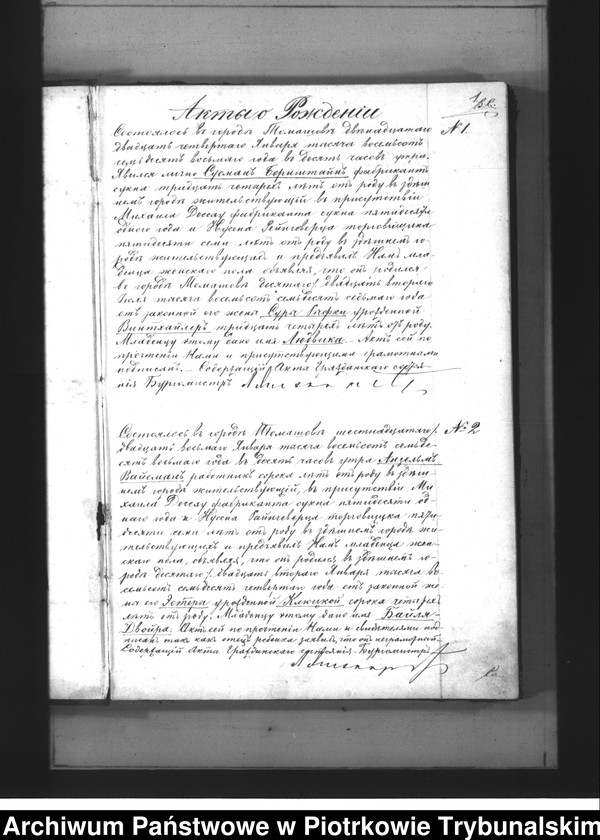 Акты о Рожденіи
№ 1.
Состоялось въ городѣ Томашовѣ двѣнадцатаго
двадцать четвертаго Января тысяча восемьсотъ
семьдесятъ восьмаго года въ десять часовъ утра.
Явился лично Сусманъ Борнштайнъ фабрикантъ
сукна тридцать четырехъ лѣтъ отъ роду въ здѣш-
немъ городѣ жительствующій въ присутствіи
Михаила Дессау фабриканта сукна пятидесяти
одного года и Нусена Рейнгерца торговщика
пятидесяти семи лѣтъ отъ роду въ здѣшнемъ го-
родѣ жительствующихъ и предъявилъ Намъ мла-
денца женскаго пола объявляя, что онъ родился
въ городѣ Томашовѣ десятаго/ двадцать втораго
Іюля тысяча восемьсотъ семьдесятъ седьмаго года
отъ законной его жены Суры Рафки урожденной
тридцать четырехъ лѣтъ отъ роду.
Младенцу этому дано имя Людвика. Актъ сей по
прочтеніи Нами и присутствующими грамотными
подписанъ. Содержащій Акты Гражданскаго состоя-
нія Бургомистръ
Состоялось въ городѣ Томашовѣ шестнадцатаго/
№ 2
двадцать восьмаго Января тысяча восемьсотъ семьде-
сятъ восьмаго года въ десять часовъ утра Анзельмъ
Вайсманъ работникъ сорока лѣтъ отъ роду въ здѣш-
немъ городѣ жительствующій, въ присутствіи Ми-
хаила Дессау фабриканта сукна пятидесяти од-
наго года и Нусена Райнгерца торговщика пяти-
десяти семи лѣтъ отъ роду въ здѣшнемъ городѣ жи-
тельствующихъ и предъявилъ Намъ младенца жен-
скаго пола, объявляя, что онъ родился въ здѣшнемъ го-
родѣ десятаго/ двадцать втораго Января тысяча во-
семьсотъ семьдесятъ четвертаго года отъ законной же-
ны его Эстера урожденной Клюцкой сорока четырехъ
лѣтъ отъ роду. Младенцу этому дано имя Байля-
Двойра. Актъ сей по прочтеніи Нами и свидѣтелями под-
писанъ такъ какъ отецъ ребенка заявилъ, что онъ неграмотный.
Содержащій Акты Гражданскаго состоянія Бургомистръ
Archiwum Państwowe w Piotrkowie Trybunalskim